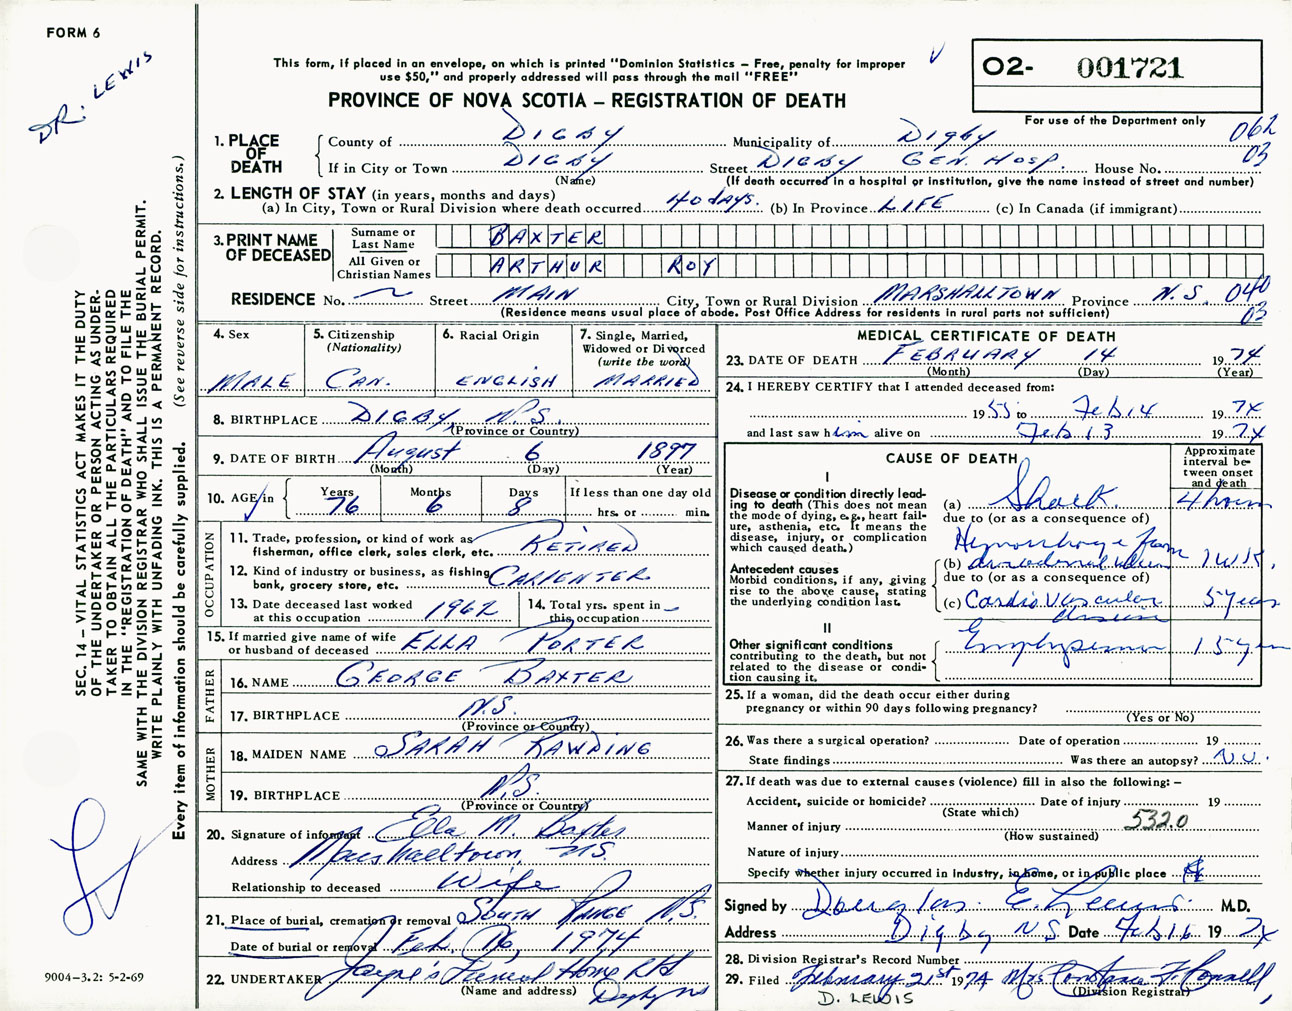 FORM 6
DR. LEWIS
This form, if placed in an envelope, on which is printed "Dominion Statistics – Free, penalty for improper
use $50," and properly addressed will pass through the mail "FREE"
PROVINCE OF NOVA SCOTIA – REGISTRATION OF DEATH
O2- 001721
For use of the Department only
062
03
1. PLACE OF DEATH
County of DIGBY Municipality of Digby
If in City or Town DIGBY Street DIGBY GEN. HOSP. House No.
(Name) (If death occurred in a hospital or institution, give the name instead of street and number)
2. LENGTH OF STAY (in years, months and days)
(a) In City, Town or Rural Division where death occurred 40 days. (b) In Province LIFE (c) In Canada (if immigrant)
3. PRINT NAME OF DECEASED
Surname or Last Name BAXTER
All Given or Christian Names ARTHUR ROY
RESIDENCE No. Street MAIN City, Town or Rural Division MARSHALLTOWN Province N.S. 040
03
(Residence means usual place of abode. Post Office Address for residents in rural parts not sufficient)
4. Sex MALE
5. Citizenship (Nationality) CAN.
6. Racial Origin ENGLISH
7. Single, Married, Widowed or Divorced (write the word) MARRIED
8. BIRTHPLACE DIGBY, N.S.
(Province or Country)
9. DATE OF BIRTH August 6 1897
(Month) (Day) (Year)
10. AGE in Years 76 Months 6 Days 8 If less than one day old
hrs. or min.
OCCUPATION
11. Trade, profession, or kind of work as
fisherman, office clerk, sales clerk, etc. RETIRED
12. Kind of industry or business, as fishing,
bank, grocery store, etc. CARPENTER
13. Date deceased last worked
at this occupation 1962
14. Total yrs. spent in
this occupation
15. If married give name of wife
or husband of deceased ELLA PORTER
FATHER
16. NAME GEORGE BAXTER
17. BIRTHPLACE N.S.
(Province or Country)
MOTHER
18. MAIDEN NAME SARAH RAWDING
19. BIRTHPLACE N.S.
(Province or Country)
20. Signature of informant Ella M. Baxter
Address Marshalltown, N.S.
Relationship to deceased Wife
21. Place of burial, cremation or removal SOUTH RANGE N.S.
Date of burial or removal Feb. 1974
22. UNDERTAKER Jayne's Funeral Home Ltd
(Name and address) Digby ns
MEDICAL CERTIFICATE OF DEATH
23. DATE OF DEATH FEBRUARY 14 1974
(Month) (Day) (Year)
24. I HEREBY CERTIFY that I attended deceased from:
1955 to Feb 14 1974
and last saw him alive on Feb 13 1974
CAUSE OF DEATH
Approximate interval between onset and death
I
Disease or condition directly leading to death (This does not mean the mode of dying, e.g., heart failure, asthenia, etc. It means the disease, injury, or complication which caused death.)
(a) Shock 4 hours
due to (or as a consequence of)
Hemorrhage from
(b) duodenal ulcer 1 wk.
due to (or as a consequence of)
Antecedent causes
Morbid conditions, if any, giving rise to the above cause, stating the underlying condition last.
(c) Cardio Vascular disease 5 years
II
Other significant conditions
contributing to the death, but not related to the disease or condition causing it.
Emphysema 15 yrs
25. If a woman, did the death occur either during
pregnancy or within 90 days following pregnancy?
(Yes or No)
26. Was there a surgical operation? Date of operation 19
State findings Was there an autopsy? No.
27. If death was due to external causes (violence) fill in also the following: –
Accident, suicide or homicide? Date of injury 19
(State which)
Manner of injury 532.0
(How sustained)
Nature of injury
Specify whether injury occurred in Industry, in home, or in public place
Signed by Douglas E. Lewis M.D.
Address Digby N S Date Feb 16 1974
28. Division Registrar's Record Number
29. Filed February 21st 1974 Mrs Constance F. Connell
(Division Registrar)
D. LEWIS
SEC. 14 – VITAL STATISTICS ACT MAKES IT THE DUTY
OF THE UNDERTAKER OR PERSON ACTING AS UNDER-
TAKER TO OBTAIN ALL THE PARTICULARS REQUIRED
IN THE "REGISTRATION OF DEATH" AND TO FILE THE
SAME WITH THE DIVISION REGISTRAR WHO SHALL ISSUE THE BURIAL PERMIT.
WRITE PLAINLY WITH UNFADING INK. THIS IS A PERMANENT RECORD.
Every item of information should be carefully supplied. (See reverse side for instructions.)
9004–3.2: 5-2-69